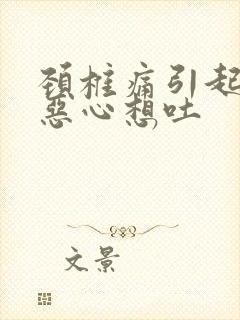 颈椎痛引起
恶心想吐
文景